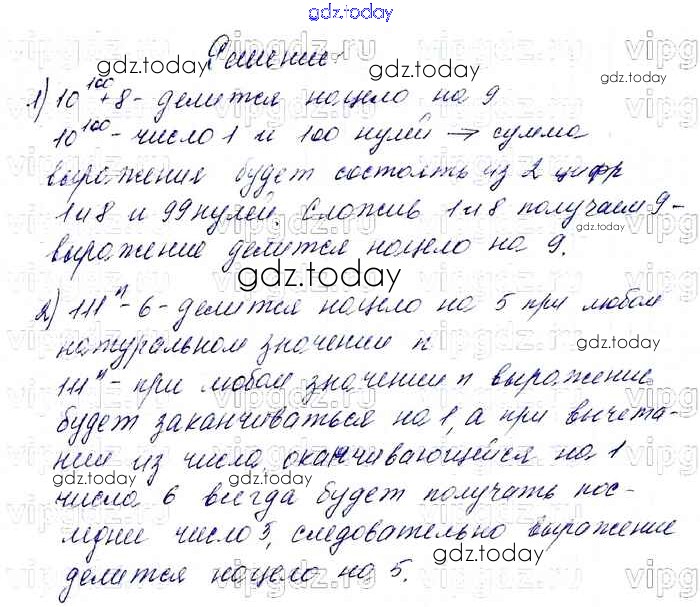 gdz.today
Решение.
gdz.today
gdz.today
1) 10¹⁰⁰+8 - делится нацело на 9
10¹⁰⁰ - число 1 и 100 нулей → сумма
gdz.today
выражения будет состоять из 2 цифр
1 и 8 и 99 нулей. Сложив 1 и 8 получаем 9 -
выражение делится нацело на 9.
gdz.today
2) 111ⁿ - 6 - делится нацело на 5 при любом
натуральном значении n
gdz.today
111ⁿ - при любом значении n выражение
будет заканчиваться на 1, а при вычета-
нии из числа, оканчивающейся на 1
gdz.today
числа 6 всегда будет получать пос-
ледние число 5, следовательно выражение
gdz.today
делится нацело на 5.